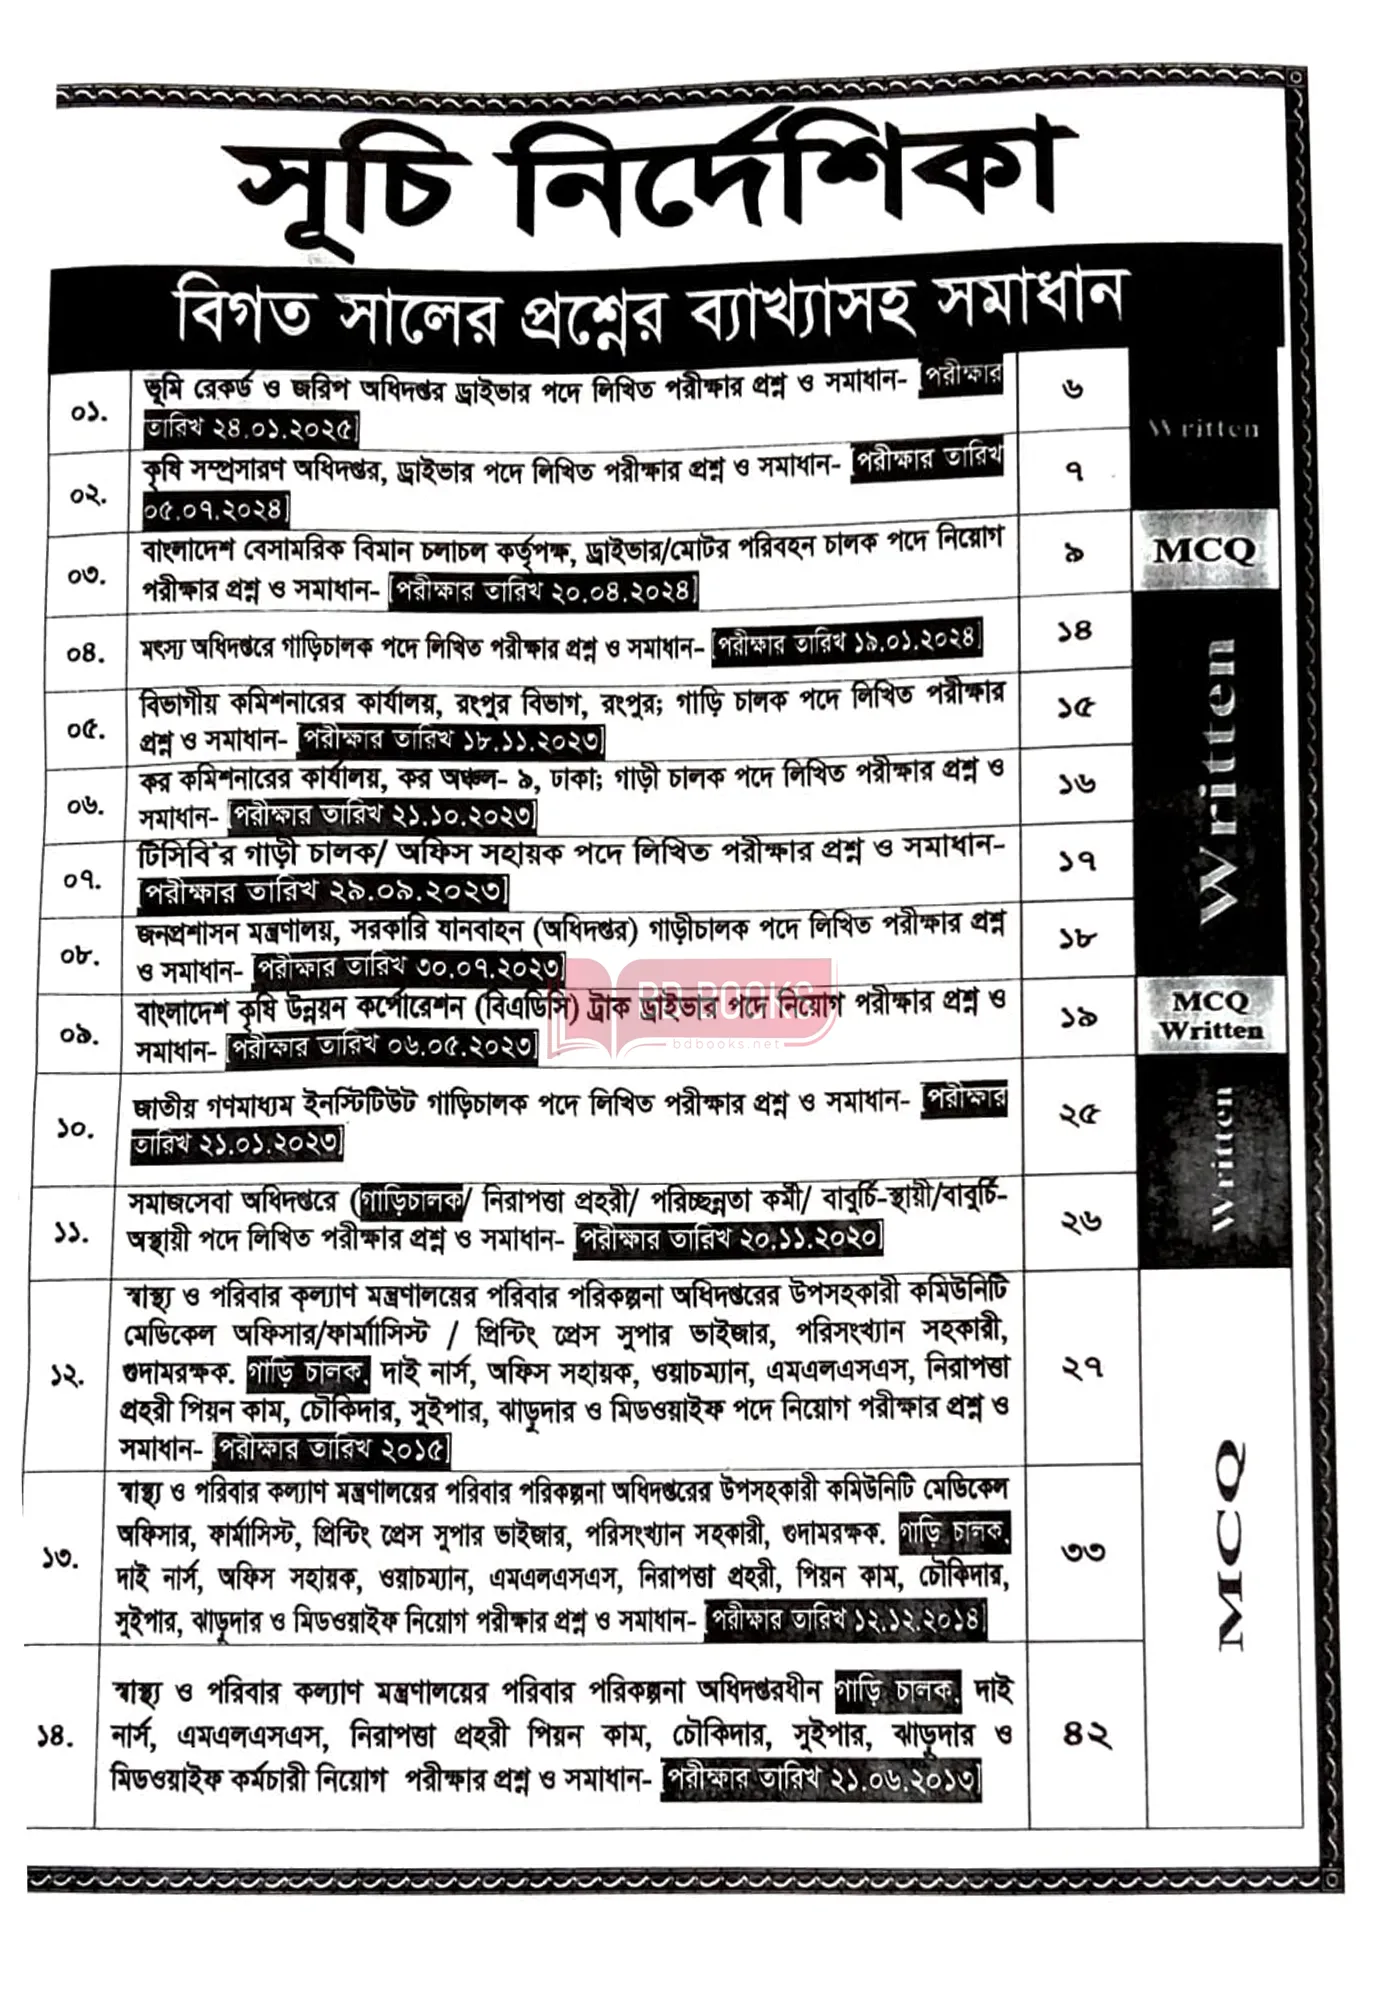 সূচি নির্দেশিকা
বিগত সালের প্রশ্নের ব্যাখ্যাসহ সমাধান
০১. ভূমি রেকর্ড ও জরিপ অধিদপ্তর ড্রাইভার পদে লিখিত পরীক্ষার প্রশ্ন ও সমাধান- [পরীক্ষার
তারিখ ২৪.০১.২০২৫] ৬
Written
০২. কৃষি সম্প্রসারণ অধিদপ্তর, ড্রাইভার পদে লিখিত পরীক্ষার প্রশ্ন ও সমাধান- [পরীক্ষার তারিখ
০৫.০৭.২০২৪] ৭
০৩. বাংলাদেশ বেসামরিক বিমান চলাচল কর্তৃপক্ষ, ড্রাইভার/মোটর পরিবহন চালক পদে নিয়োগ
পরীক্ষার প্রশ্ন ও সমাধান- [পরীক্ষার তারিখ ২০.০৪.২০২৪] ৯
MCQ
০৪. মৎস্য অধিদপ্তরে গাড়িচালক পদে লিখিত পরীক্ষার প্রশ্ন ও সমাধান- [পরীক্ষার তারিখ ১৯.০১.২০২৪] ১৪
০৫. বিভাগীয় কমিশনারের কার্যালয়, রংপুর বিভাগ, রংপুর; গাড়ি চালক পদে লিখিত পরীক্ষার
প্রশ্ন ও সমাধান- [পরীক্ষার তারিখ ১৮.১১.২০২৩] ১৫
০৬. কর কমিশনারের কার্যালয়, কর অঞ্চল- ৯, ঢাকা; গাড়ী চালক পদে লিখিত পরীক্ষার প্রশ্ন ও
সমাধান- [পরীক্ষার তারিখ ২১.১০.২০২৩] ১৬
Written
০৭. টিসিবি'র গাড়ী চালক/ অফিস সহায়ক পদে লিখিত পরীক্ষার প্রশ্ন ও সমাধান-
[পরীক্ষার তারিখ ২৯.০৯.২০২৩] ১৭
০৮. জনপ্রশাসন মন্ত্রণালয়, সরকারি যানবাহন (অধিদপ্তর) গাড়ীচালক পদে লিখিত পরীক্ষার প্রশ্ন
ও সমাধান- [পরীক্ষার তারিখ ৩০.০৭.২০২৩] ১৮
BD BOOKS
bdbooks.net
০৯. বাংলাদেশ কৃষি উন্নয়ন কর্পোরেশন (বিএডিসি) ট্রাক ড্রাইভার পদে নিয়োগ পরীক্ষার প্রশ্ন ও
সমাধান- [পরীক্ষার তারিখ ০৬.০৫.২০২৩] ১৯
MCQ
Written
১০. জাতীয় গণমাধ্যম ইনস্টিটিউট গাড়িচালক পদে লিখিত পরীক্ষার প্রশ্ন ও সমাধান- [পরীক্ষার
তারিখ ২১.০১.২০২৩] ২৫
Written
১১. সমাজসেবা অধিদপ্তরে (গাড়িচালক/ নিরাপত্তা প্রহরী/ পরিচ্ছন্নতা কর্মী/ বাবুর্চি-স্থায়ী/বাবুর্চি-
অস্থায়ী পদে লিখিত পরীক্ষার প্রশ্ন ও সমাধান- [পরীক্ষার তারিখ ২০.১১.২০২০] ২৬
১২. স্বাস্থ্য ও পরিবার কল্যাণ মন্ত্রণালয়ের পরিবার পরিকল্পনা অধিদপ্তরের উপসহকারী কমিউনিটি
মেডিকেল অফিসার/ফার্মাসিস্ট / প্রিন্টিং প্রেস সুপার ভাইজার, পরিসংখ্যান সহকারী,
গুদামরক্ষক. গাড়ি চালক, দাই নার্স, অফিস সহায়ক, ওয়াচম্যান, এমএলএসএস, নিরাপত্তা
প্রহরী পিয়ন কাম, চৌকিদার, সুইপার, ঝাড়ুদার ও মিডওয়াইফ পদে নিয়োগ পরীক্ষার প্রশ্ন ও
সমাধান- [পরীক্ষার তারিখ ২০১৫] ২৭
১৩. স্বাস্থ্য ও পরিবার কল্যাণ মন্ত্রণালয়ের পরিবার পরিকল্পনা অধিদপ্তরের উপসহকারী কমিউনিটি মেডিকেল
অফিসার, ফার্মাসিস্ট, প্রিন্টিং প্রেস সুপার ভাইজার, পরিসংখ্যান সহকারী, গুদামরক্ষক. গাড়ি চালক,
দাই নার্স, অফিস সহায়ক, ওয়াচম্যান, এমএলএসএস, নিরাপত্তা প্রহরী, পিয়ন কাম, চৌকিদার,
সুইপার, ঝাড়ুদার ও মিডওয়াইফ নিয়োগ পরীক্ষার প্রশ্ন ও সমাধান- [পরীক্ষার তারিখ ১২.১২.২০১৪] ৩৩
MCQ
১৪. স্বাস্থ্য ও পরিবার কল্যাণ মন্ত্রণালয়ের পরিবার পরিকল্পনা অধিদপ্তরধীন গাড়ি চালক, দাই
নার্স, এমএলএসএস, নিরাপত্তা প্রহরী পিয়ন কাম, চৌকিদার, সুইপার, ঝাড়ুদার ও
মিডওয়াইফ কর্মচারী নিয়োগ পরীক্ষার প্রশ্ন ও সমাধান- [পরীক্ষার তারিখ ২১.০৬.২০১৩] ৪২